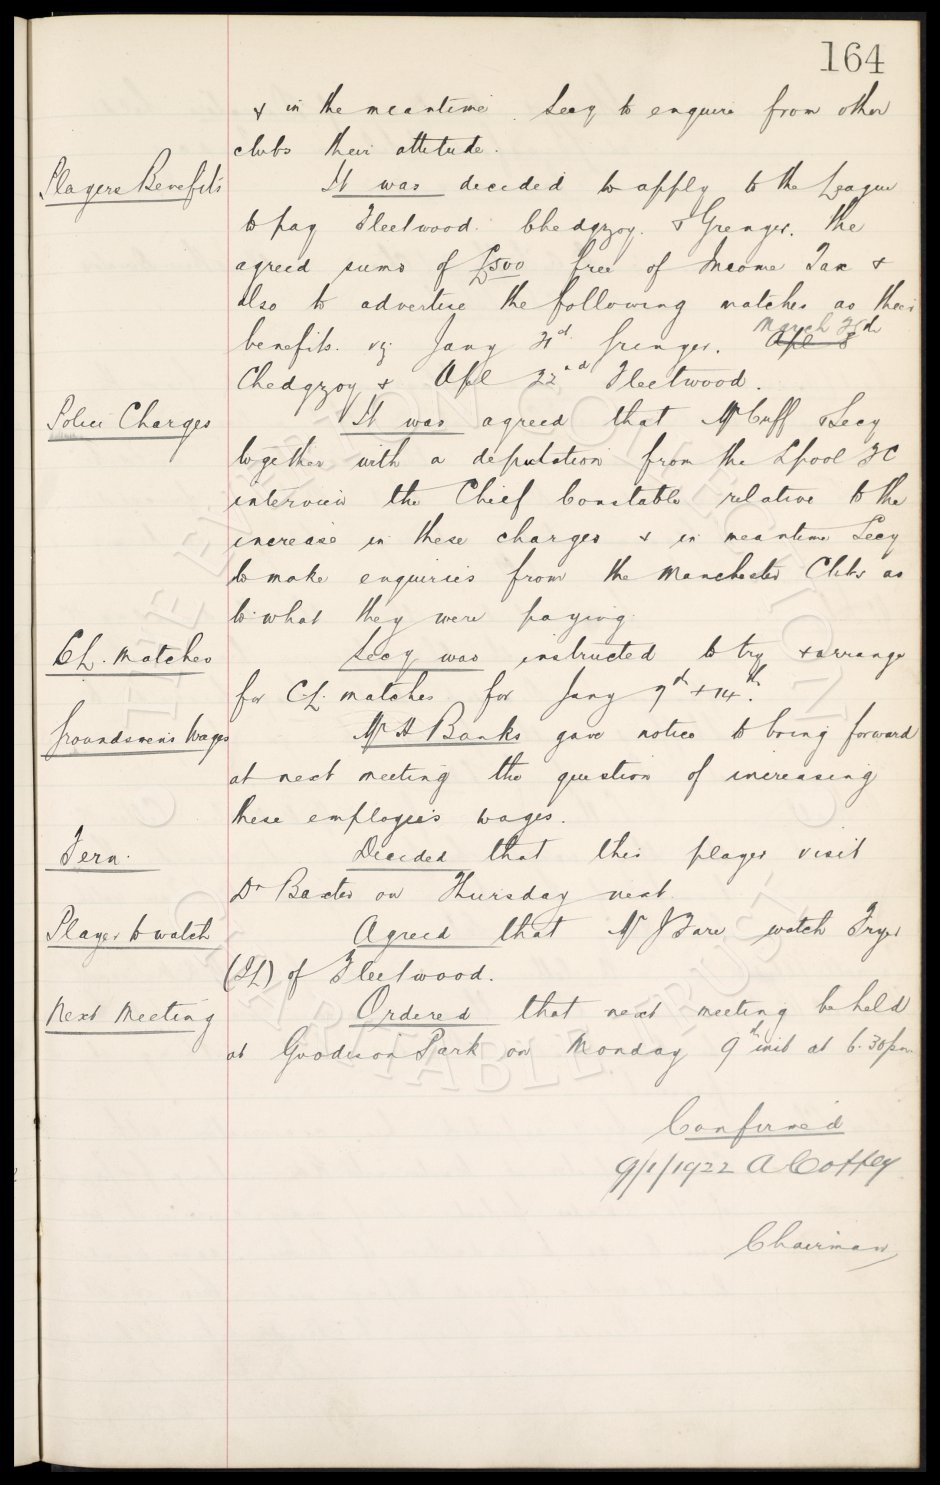 164
& in the meantime Secy to enquire from other
clubs their attitude.
Players Benefits
It was decided to apply to the League
to pay Fleetwood. Chedgzoy. & Grenyer. the
agreed sums of £500 free of Income Tax &
also to advertise the following matches as their
benefits. viz Jany 21st Grenyer. Apl 8
March
Chedgzoy & Apl 22nd Fleetwood.
Police Charges
It was agreed that Mr Cuff & Secy
together with a deputation from the Lpool FC
interview the Chief Constable relative to the
increase in these charges & in meantime Secy
to make enquiries from the Manchester Clubs as
to what they were paying.
CL. Matches
Secy was instructed to try & arrange
for CL. matches for Jany 9th & 14th.
Groundsmen's Wages
Mr H Banks gave notice to bring forward
at next meeting the question of increasing
these employees wages.
Fern.
Decided that this player visit
Dr Baxter on Thursday next.
Player to watch
Agreed that Mr J Fare watch Fryer
(IL) of Fleetwood.
Next Meeting
Ordered that next meeting be held
at Goodison Park on Monday 9th inst at 6.30pm.
Confirmed
9/1/1922 A Coffey
Chairman
THE EVERTON COLLECTION
CHARITABLE TRUST